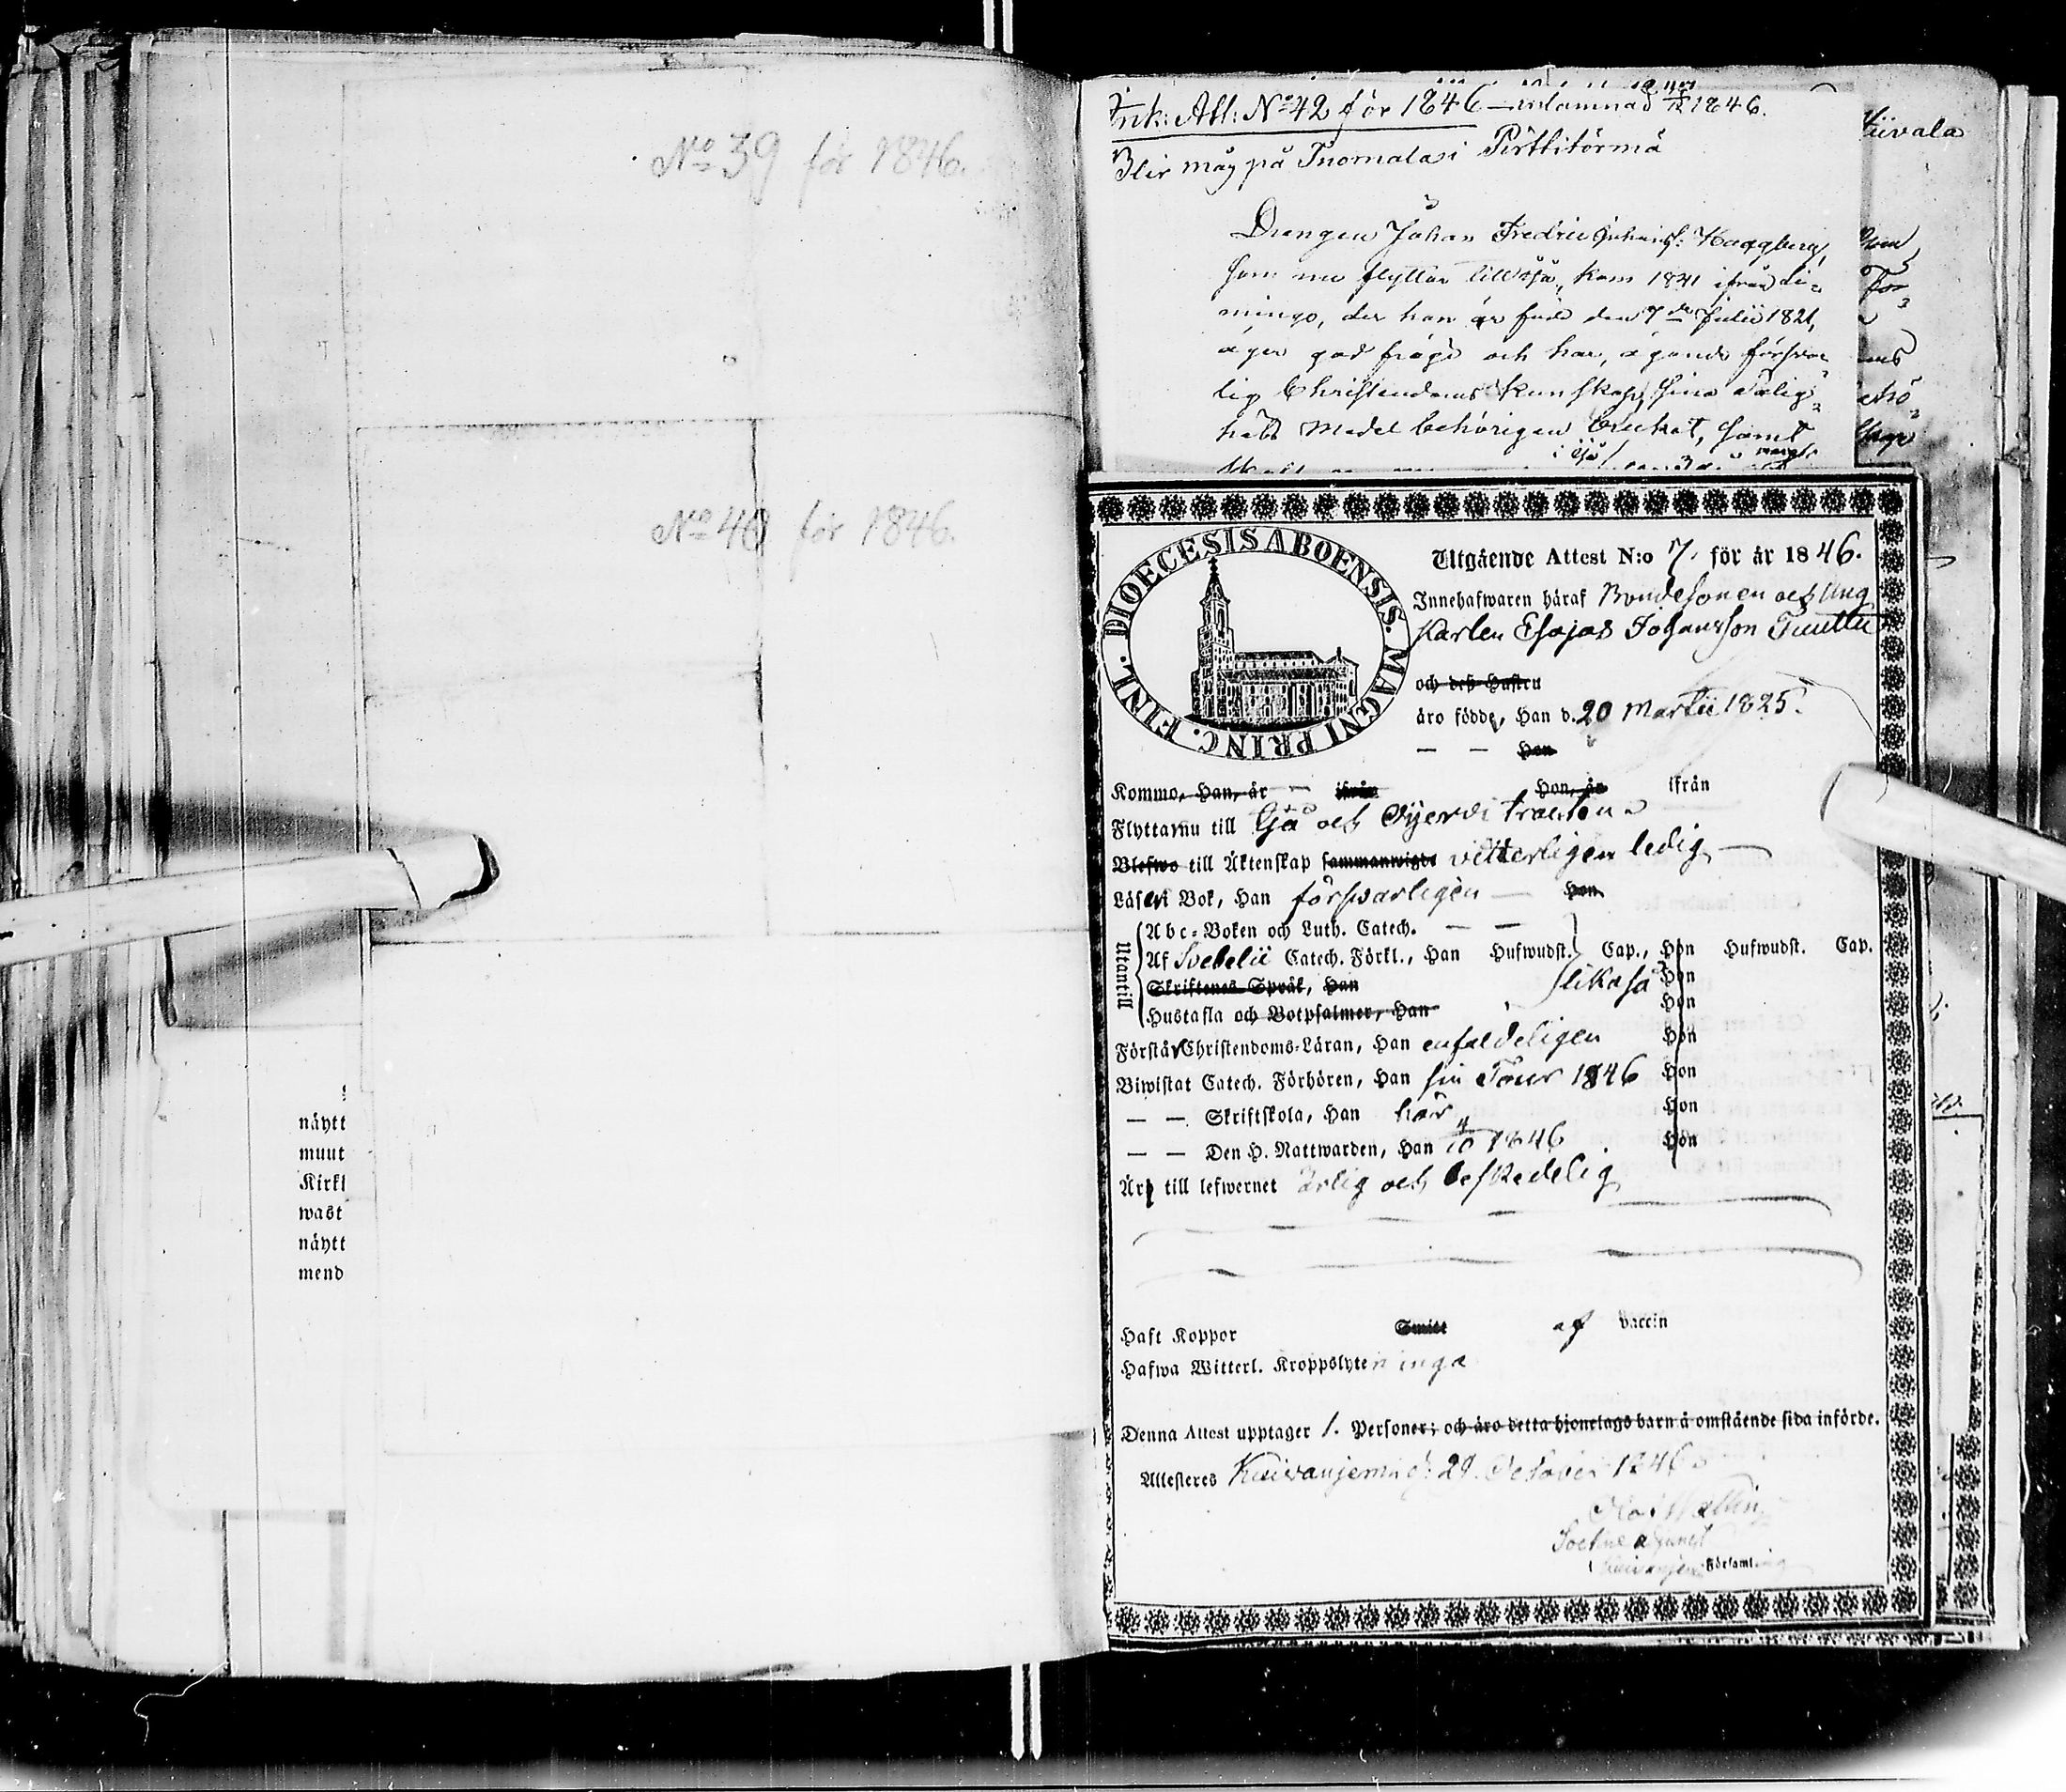 No 39 för 1846.
No 40 för 1846.
näytt
muut
Kirkl
wast
näytt
mend
Ink: Att: No 42 för 1846 – inlämnad 1846.
Blir måg på Tuomalasi Pirttitörmä
Drengen Johan Fredric Johanss: Haggberg,
som nu flyttar till Ijå, kom 1841 ifrån Li=
mingo, der han är född den 7de Julii 1821,
äger god frägd och har, ägande försvar
lig Christendoms kunskap, sina salig
hets medel behörigen brukat, samt
iivala
DIOECESIS ABOENSIS. MAGNI PRINC. FINL.
Utgående Attest N:o 7. för år 1846.
Innehafwaren häraf Bondesonen och Ung
Karlen Esajas Johansson Tuuttu
och deß Hustru
äro födde, Han d. 20 Martii 1825.
— — Hon
Kommo, Han, år — ifrån Hon, år ifrån
Flyttar nu till Ijå och trakten
Blefwo till Äktenskap sammanwigde vitterligen ledig —
Läser i Bok, Han försvarligen — Hon
Utantill
Abc-Boken och Luth. Catech. — —
Af Svebelii Catech. Förkl., Han Hufwudst. Cap., Hon Hufwudst. Cap.
Skriftenes Språk, Han likaså Hon
Hustafla och Botpsalmer, Han Hon
Förstår Christendoms-Läran, Han enfaldeligen Hon
Biwistat Catech. Förhören, Han sin Tour 1846 Hon
— — Skriftskola, Han här Hon
— — Den H. Nattwarden, Han 4/10 1846 Hon
Äro till lefwernet ärlig och beskedelig
Haft Koppor Smitt af Vaccin
Hafwa Witterl. Kroppslyten inga
Denna Attest upptager 1. Personer; och äro detta hjonelags barn å omstående sida införde.
Attesteres Kuivaniemi d: 29. October 1846.
Olof Wallin
Församling